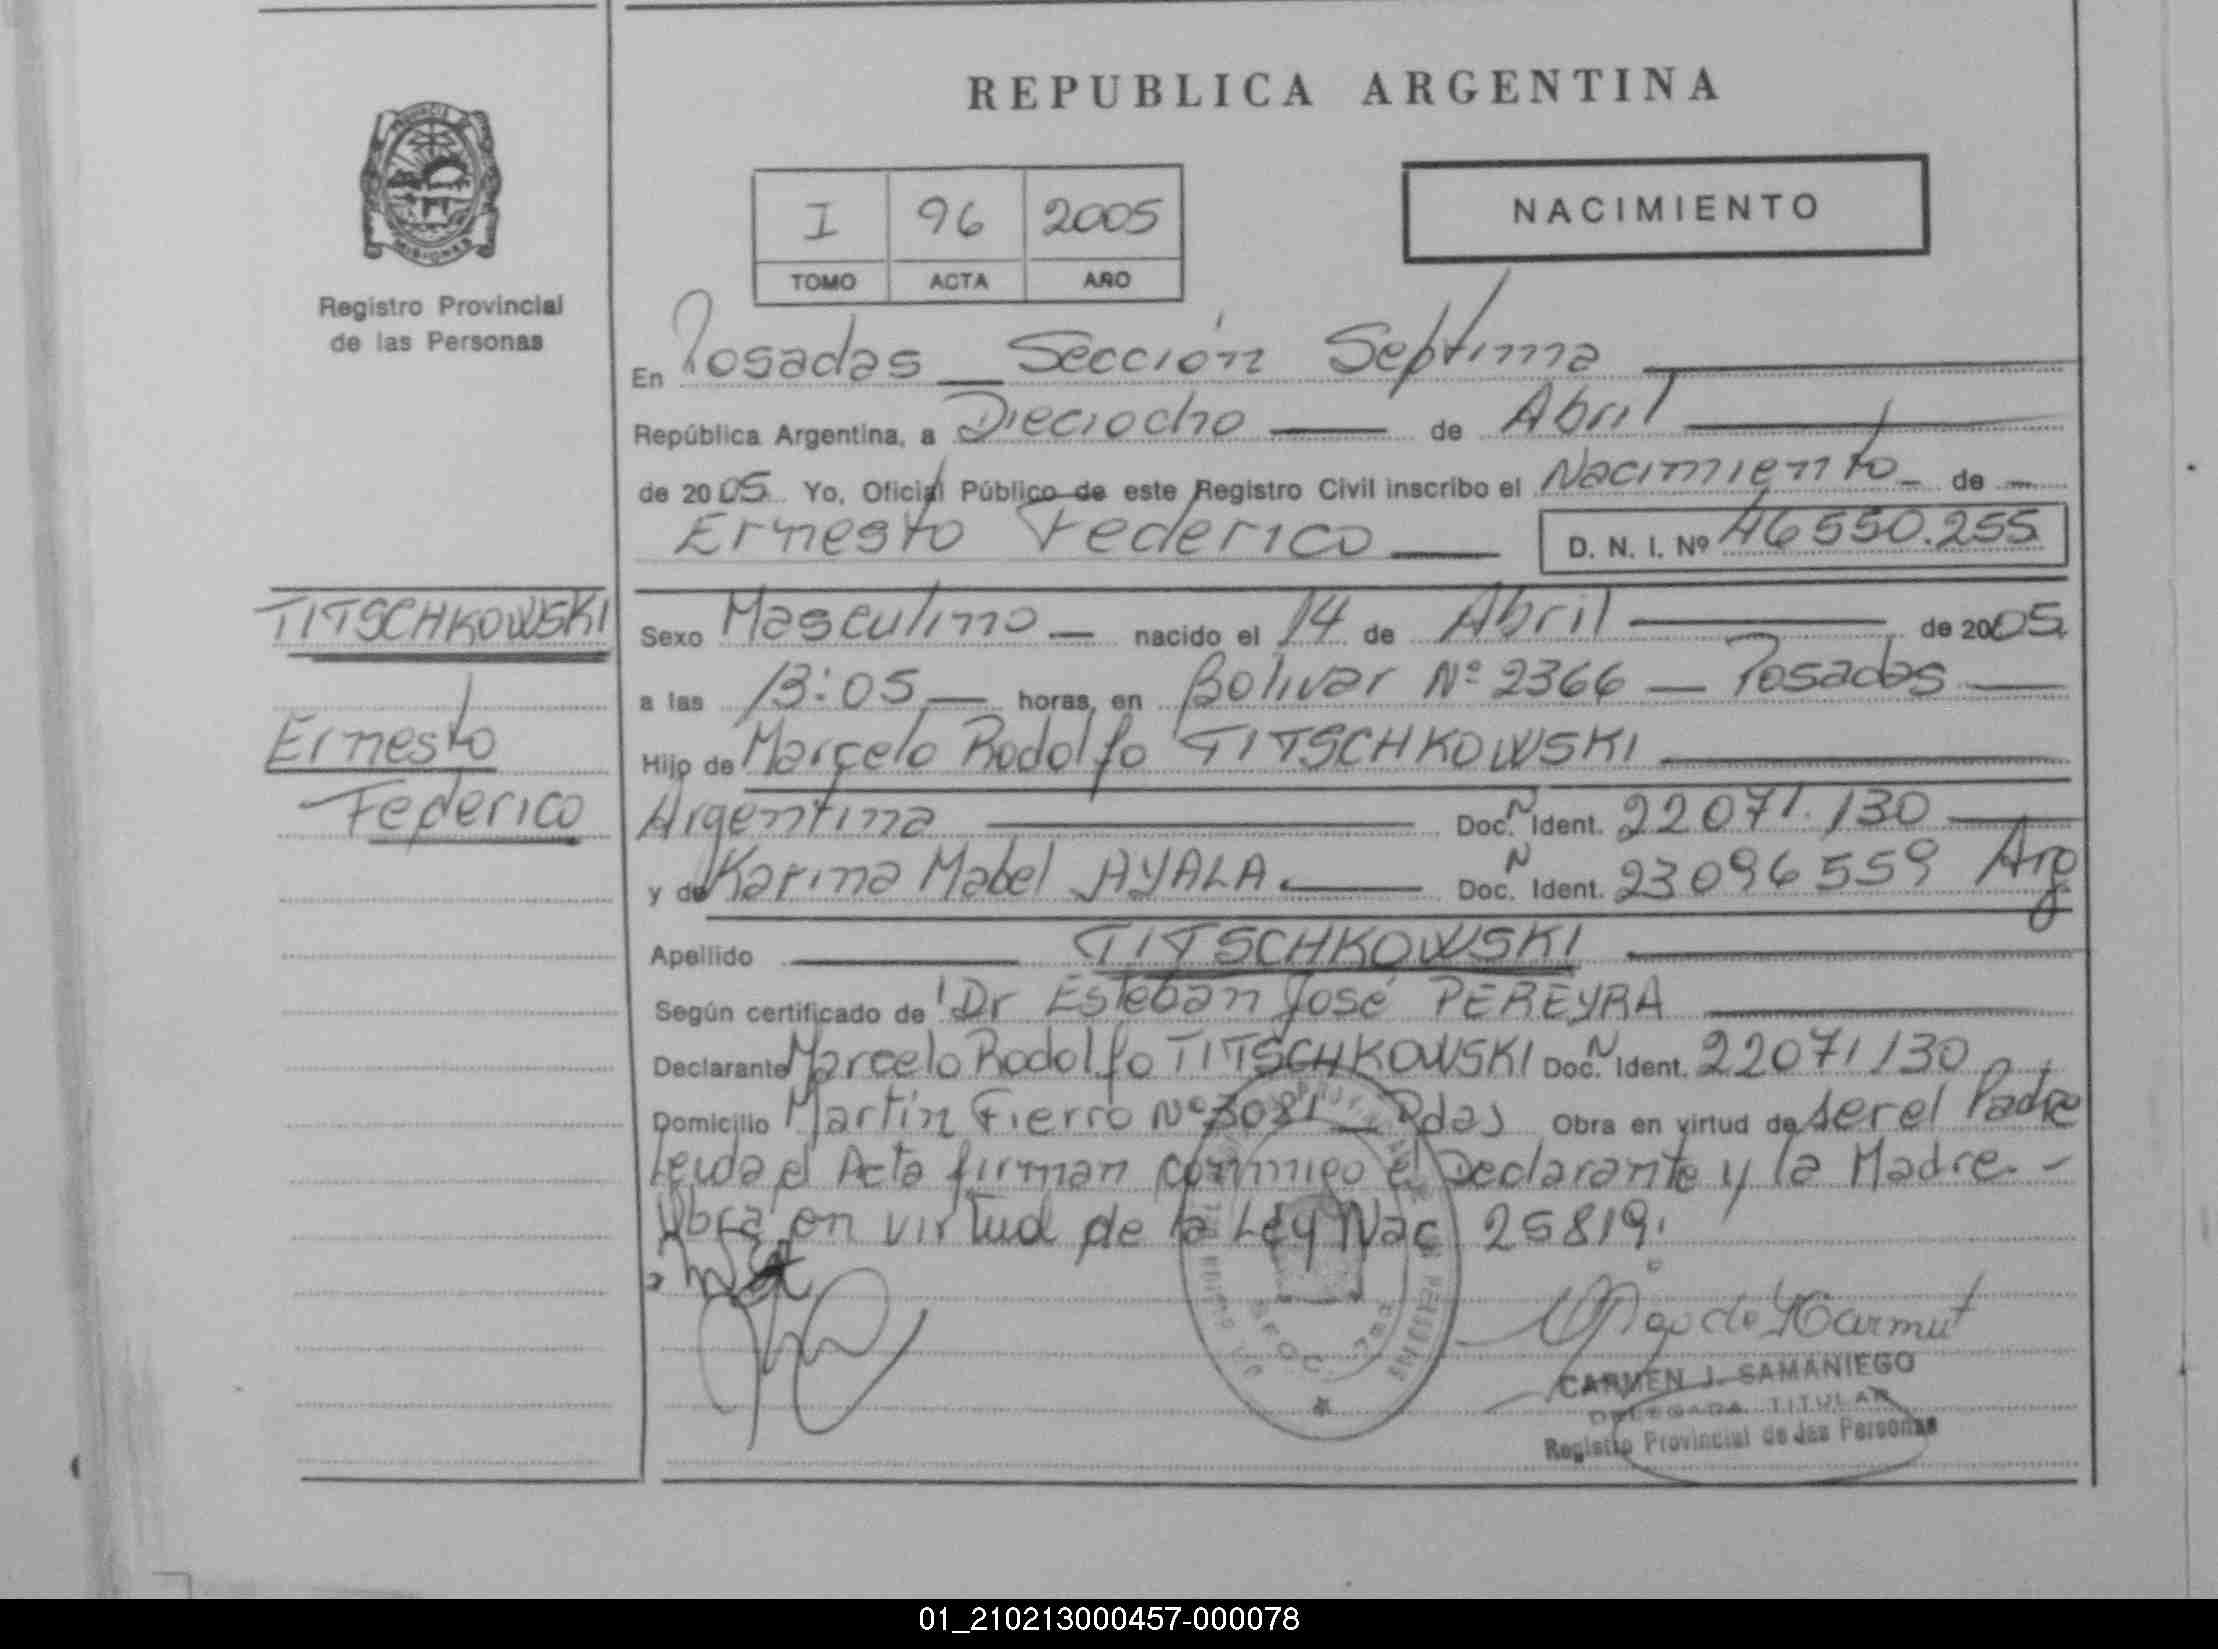 REPUBLICA ARGENTINA
PROVINCIA DE MISIONES
Registro Provincial
de las Personas
I 96 2005
TOMO ACTA AÑO
NACIMIENTO
En Posadas Sección Septima
República Argentina, a Dieciocho de Abril
de 2005 Yo, Oficial Público de este Registro Civil inscribo el Nacimiento de
Ernesto Federico D. N. I. Nº 46550.255
TITSCHKOWSKI
Ernesto
Federico
Sexo Masculino nacido el 14 de Abril de 2005
a las 13:05 horas, en Bolivar Nº 2366 Posadas
Hijo de Marcelo Rodolfo TITSCHKOWSKI
Argentina Doc. N Ident. 22071.130
y de Karina Mabel AYALA. Doc. N Ident. 23096559 Arg
Apellido TITSCHKOWSKI
Según certificado de Dr Esteban José PEREYRA
Declarante Marcelo Rodolfo TITSCHKOWSKI Doc. N Ident. 22071130
Domicilio Martín Fierro Nº 3081 Pdas Obra en virtud de ser el Padre
Leida el Acta firman conmigo el Declarante y la Madre.
Obra en virtud de la Ley Nac 25819.
CARMEN J. SAMANIEGO
DELEGADA TITULAR
Registro Provincial de las Personas
01_210213000457-000078